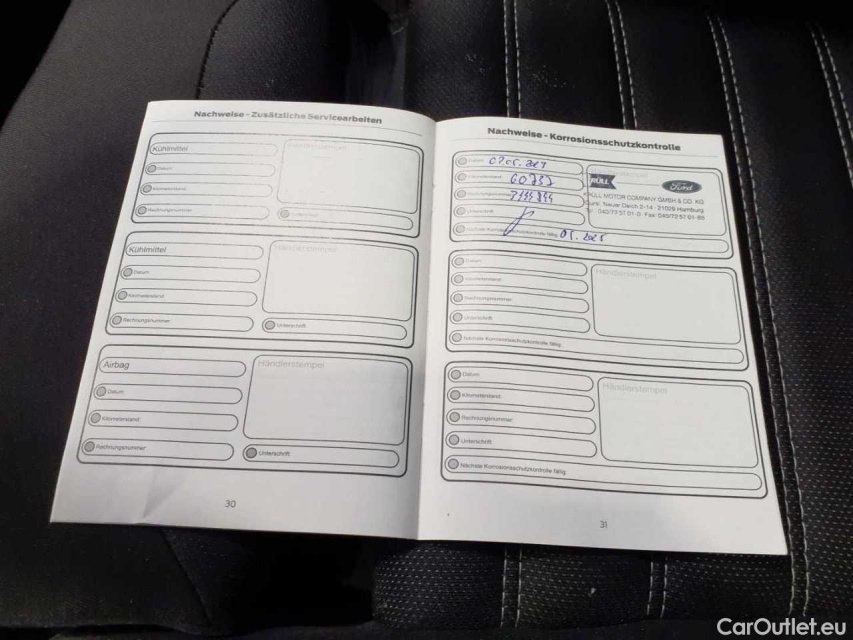 Nachweise - Zusätzliche Servicearbeiten
Kühlmittel
Händlerstempel
Datum
Kilometerstand
Rechnungsnummer
Unterschrift
Kühlmittel
Händlerstempel
Datum
Kilometerstand
Rechnungsnummer
Unterschrift
Airbag
Händlerstempel
Datum
Kilometerstand
Rechnungsnummer
Unterschrift
30
Nachweise - Korrosionsschutzkontrolle
Datum
Kilometerstand 60
Rechnungsnummer
Unterschrift
KRÜLL
Ford
KRÜLL MOTOR COMPANY GMBH & CO. KG
Neuer Deich 2-14 · 21029 Hamburg
Tel.: 040/72 57 01-0 Fax: 040/72 57 01-88
Nächste Korrosionsschutzkontrolle fällig
Datum
Händlerstempel
Kilometerstand
Rechnungsnummer
Unterschrift
Nächste Korrosionsschutzkontrolle fällig
Datum
Händlerstempel
Kilometerstand
Rechnungsnummer
Unterschrift
Nächste Korrosionsschutzkontrolle fällig
31
CarOutlet.eu